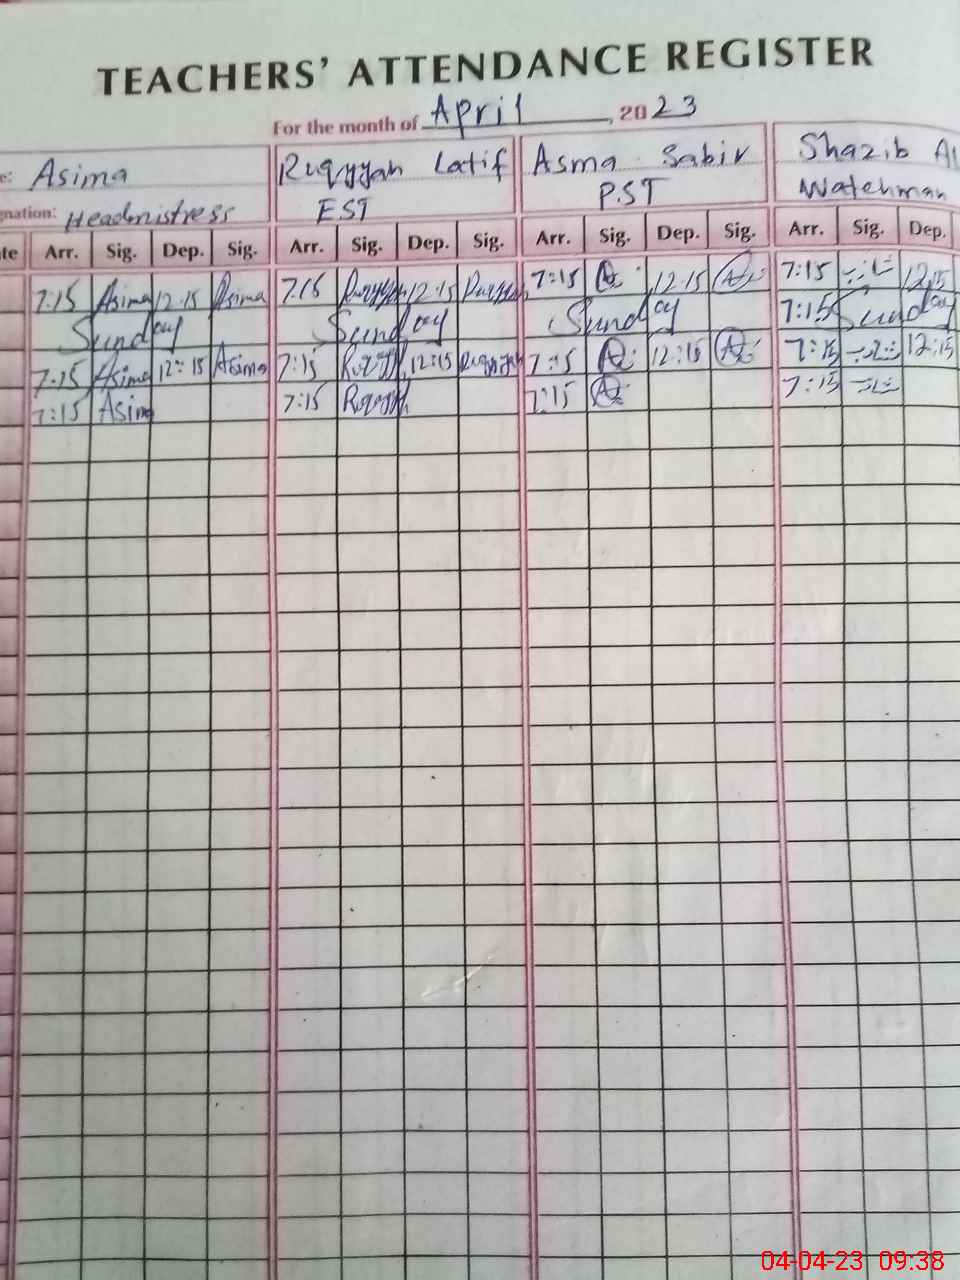 TEACHERS' ATTENDANCE REGISTER
For the month of April, 2023
e: Asima Ruqyyah Latif Asma Sabir Shazib Al
gnation: Headmistress EST P.ST Watchman
te Arr. Sig. Dep. Sig. Arr. Sig. Dep. Sig. Arr. Sig. Dep. Sig. Arr. Sig. Dep.
7:15 Asima 12:15 Asima 7:15 Ruqyyah 12:15 Ruqyyah 7:15 12:15 7:15 12:15
Sunday Sunday Sunday 7:15 Sunday
7:15 Asima 12:15 Asima 7:15 Ruqyyah 12:15 Ruqyyah 7:15 12:15 7:15 12:15
7:15 Asima 7:15 Ruqyyah 7:15 7:15
04-04-23 09:38